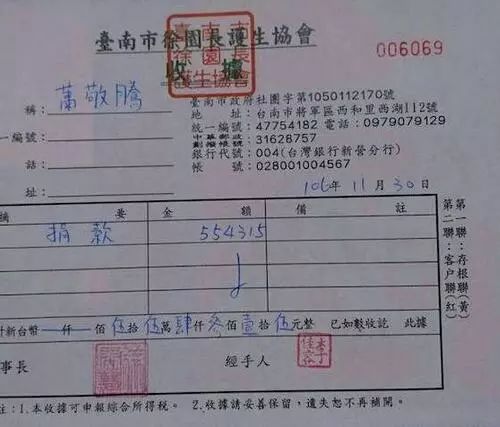 臺南市徐園長護生協會
收據
006069
臺南市政府社團字第1050112170號
稱：蕭敬騰
地 址：台南市將軍區西和里西湖112號
一編號：
統一編號：47754182 電話：0979079129
中華郵政劃撥帳號：31628757
話：
銀行代號：004(台灣銀行新營分行)
址：
帳 號：028001004567
106年11月30日
摘 要 金 額 備 註
捐款 554315
第一聯：存根聯(黃)
第二聯：客戶聯(紅)
計新台幣 仟 佰伍拾伍萬肆仟參佰壹拾伍元整 已如數收訖 此據
事長 經手人
註：1.本收據可申報綜合所得稅。 2.收據請妥善保留，遺失恕不再補開。